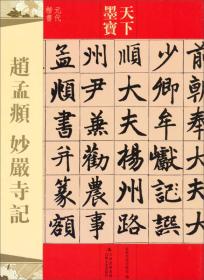 元代
楷書
天下
墨寶
趙孟頫 妙嚴寺記
前朝奉大夫大
少卿牟巘記譔
順大夫楊州路
州尹兼勸農事
孟頫書并篆額